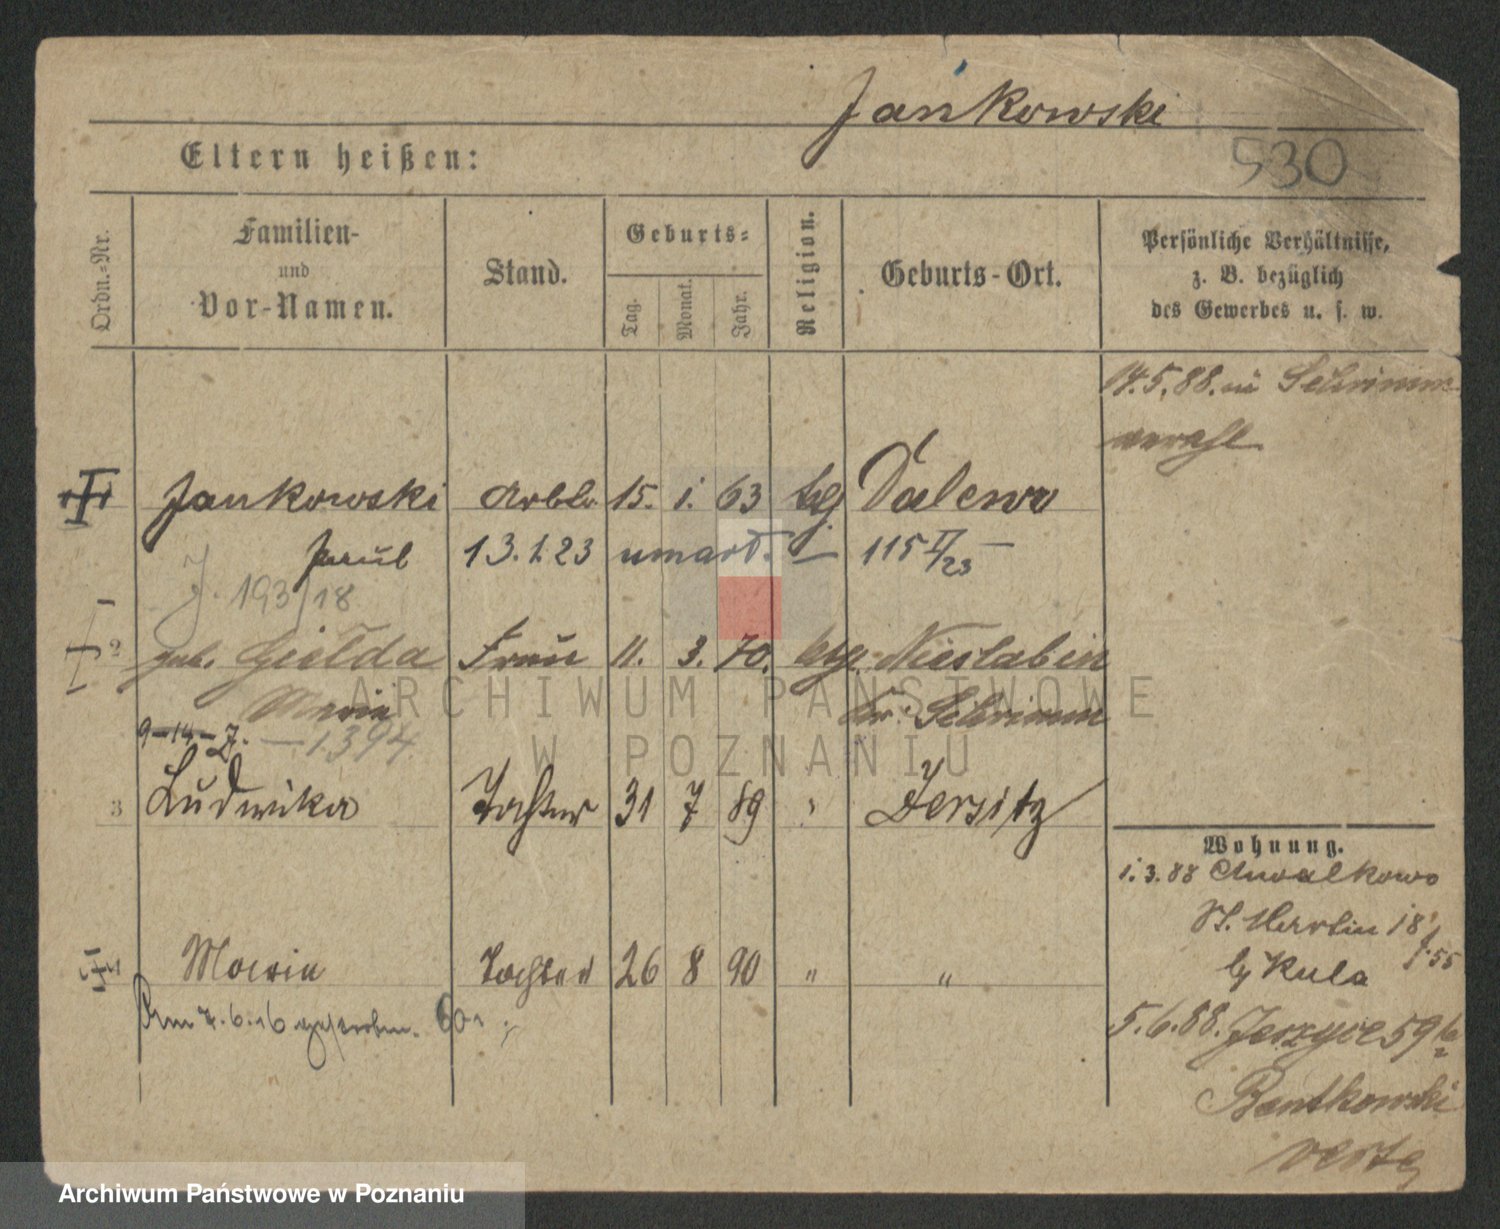 Jankowski
530
Eltern heißen:
Ordn.-Nr.
Familien-
und
Vor-Namen.
Stand.
Geburts-
Tag.
Monat.
Jahr.
Religion.
Geburts-Ort.
Persönliche Verhältnisse,
z. B. bezüglich
des Gewerbes u. s. w.
14.5.88. in Schrimm
verehl
Jankowski Arbtr 15. 1. 63 kg Dalewo
Jacub 13.1.23 umarł. — 115 II/23 —
J. 193/18
2 geb. Giełda Frau 11. 3. 70. ktg. Nieslabin
Maria Kr. Schrimm
9-14-7. — 1394
3 Ludwika Tochter 31 7 89 " Jersitz
Wohnung.
1.3.88 Chwalkowo
St. Martin 18
b/ Kula
f. 55
Maria Tochter 26 8 90 " "
Am 7.6.16 gestorben.
5.6.88. Jerzyce 59
Bentkowski
verte
ARCHIWUM PAŃSTWOWE
W POZNANIU
Archiwum Państwowe w Poznaniu